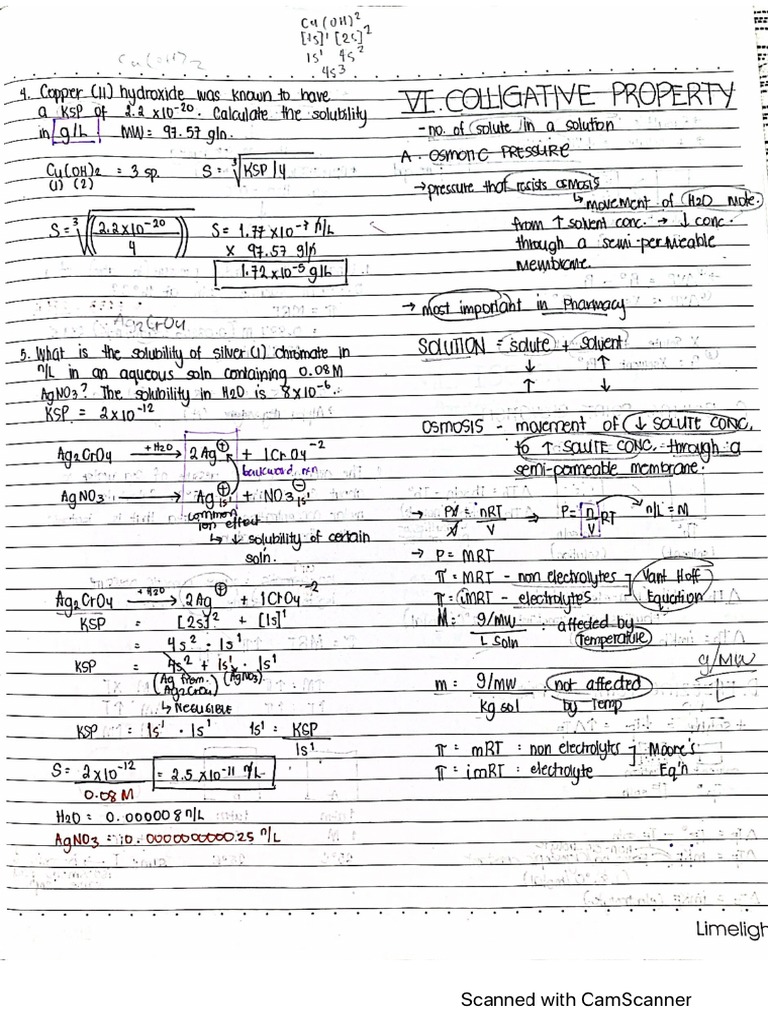 Cu(OH)2
[1s]¹ [2s]²
1s¹ 4s²
4s³
Cu(OH)2
4. Copper (II) hydroxide was known to have
a KSP of 2.2 x10⁻²⁰. Calculate the solubility
in g/L MW= 97.57 g/n.
Cu(OH)2 = 3 sp. S= ³√KSP/4
(1) (2)
S= ³√(2.2x10⁻²⁰/4) S= 1.77 x10⁻⁷ n/L
x 97.57 g/n
1.72 x10⁻⁵ g/L
Ag2CrO4
5. What is the solubility of silver (I) chromate in
n/L in an aqueous soln containing 0.08M
AgNO3? The solubility in H2O is 8x10⁻⁶.
KSP = 2x10⁻¹²
Ag2CrO4 +H2O → 2Ag⁺ + 1CrO4⁻²
backward rxn
AgNO3 → Ag⁺ 1s¹ + NO3⁻ 1s¹
common
ion effect
↳ ↓ solubility of certain
soln.
Ag2CrO4 +H2O → 2Ag⁺ + 1CrO4⁻²
KSP = [2s]² + [1s]¹
= 4s² · 1s¹
KSP = 4s² + 1s¹ · 1s¹
(Ag from Ag2CrO4) (AgNO3)
↳ NEGLIGIBLE
KSP = 1s¹ · 1s¹ 1s¹ = KSP/1s¹
S= 2x10⁻¹²/0.08M = 2.5 x10⁻¹¹ n/L
H2O = 0.000008 n/L
AgNO3 = 0.000000000025 n/L
VI. COLLIGATIVE PROPERTY
- no. of solute in a solution
A. OSMOTIC PRESSURE
→ pressure that resists osmosis
↳ movement of H2O mole.
from ↑ solvent conc. → ↓ conc.
through a semi-permeable
membrane.
→ most important in Pharmacy
SOLUTION = solute + solvent
↓ ↑
↑ ↓
OSMOSIS - movement of ↓ SOLUTE CONC.
to ↑ SOLUTE CONC. through a
semi-permeable membrane.
→ PV/V = nRT/V ⇒ P= n/V RT → n/L = M
→ P = MRT
π = MRT - non electrolytes ] Vant Hoff
π = iMRT - electrolytes Equation
M = g/MW / L soln : affected by
Temperature
g/MW
L
m = g/MW / kg sol not affected
by Temp
π = mRT : non electrolyts ] Moore's
π = imRT : electrolyte Eq'n
Limeligh
Scanned with CamScanner